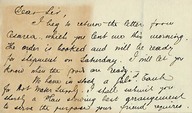 Dear Sir,
I beg to return the letter from
which you lent me this morning.
The order is booked and will be ready
for shipment on Saturday. I will let you
know when the goods are ready.
We have in stock a
for Hot Water supply. I shall submit you
shortly a plan showing best arrangement
to serve the purpose your friend requires.